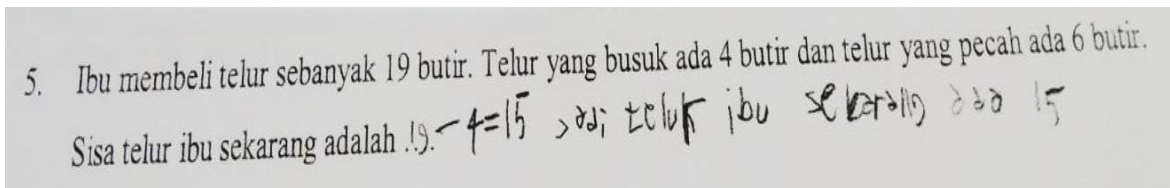 5. Ibu membeli telur sebanyak 19 butir. Telur yang busuk ada 4 butir dan telur yang pecah ada 6 butir.
Sisa telur ibu sekarang adalah .19.-4=15 Jadi telur ibu sekarang ada 15